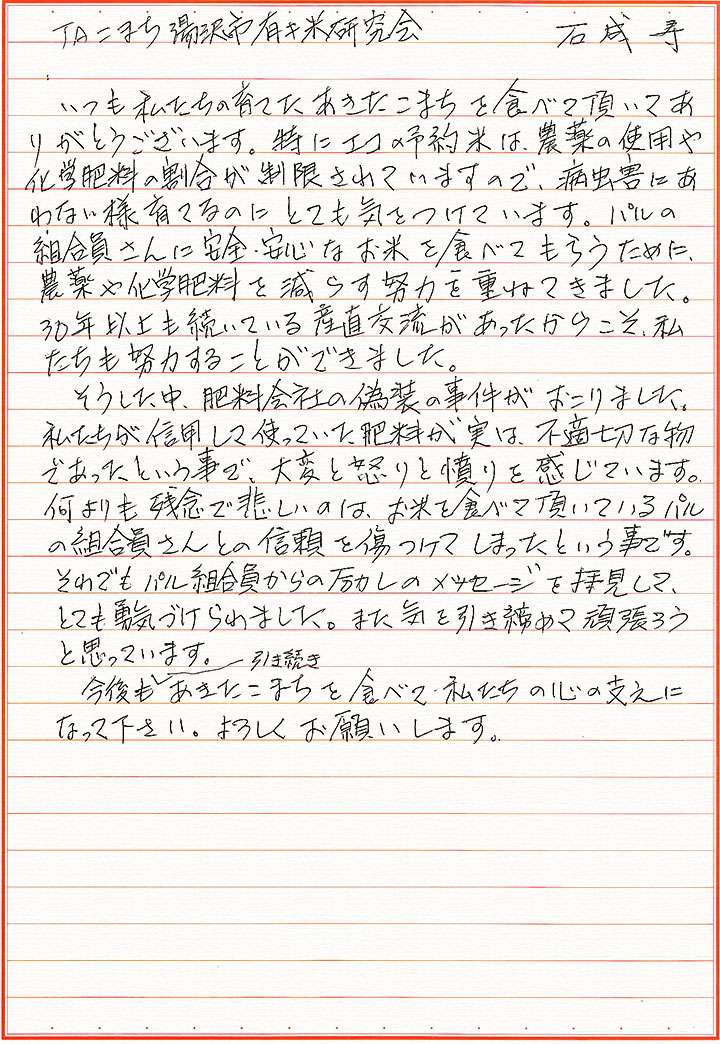 JAこまち湯沢市有キ米研究会 石成 寿
いつも私たちの育てたあきたこまちを食べて頂いてあ
りがとうございます。特にエコ・予約米は、農薬の使用や
化学肥料の割合が制限されていますので、病虫害にあ
わない様育てるのにとても気をつけています。パルの
組合員さんに安全・安心なお米を食べてもらうために、
農薬や化学肥料を減らす努力を重ねてきました。
30年以上も続いている産直交流があったからこそ、私
たちも努力することができました。
そうした中、肥料会社の偽装の事件がおこりました。
私たちが信用して使っていた肥料が実は、不適切な物
であったという事で、大変と怒りと憤りを感じています。
何よりも残念で悲しいのは、お米を食べて頂いているパル
の組合員さんとの信頼を傷つけてしまったという事です。
それでもパル組合員からの励ましのメッセージを拝見して、
とても勇気づけられました。また気を引き締めて頑張ろう
と思っています。
今後も引き続きあきたこまちを食べて・私たちの心の支えに
なって下さい。よろしくお願いします。